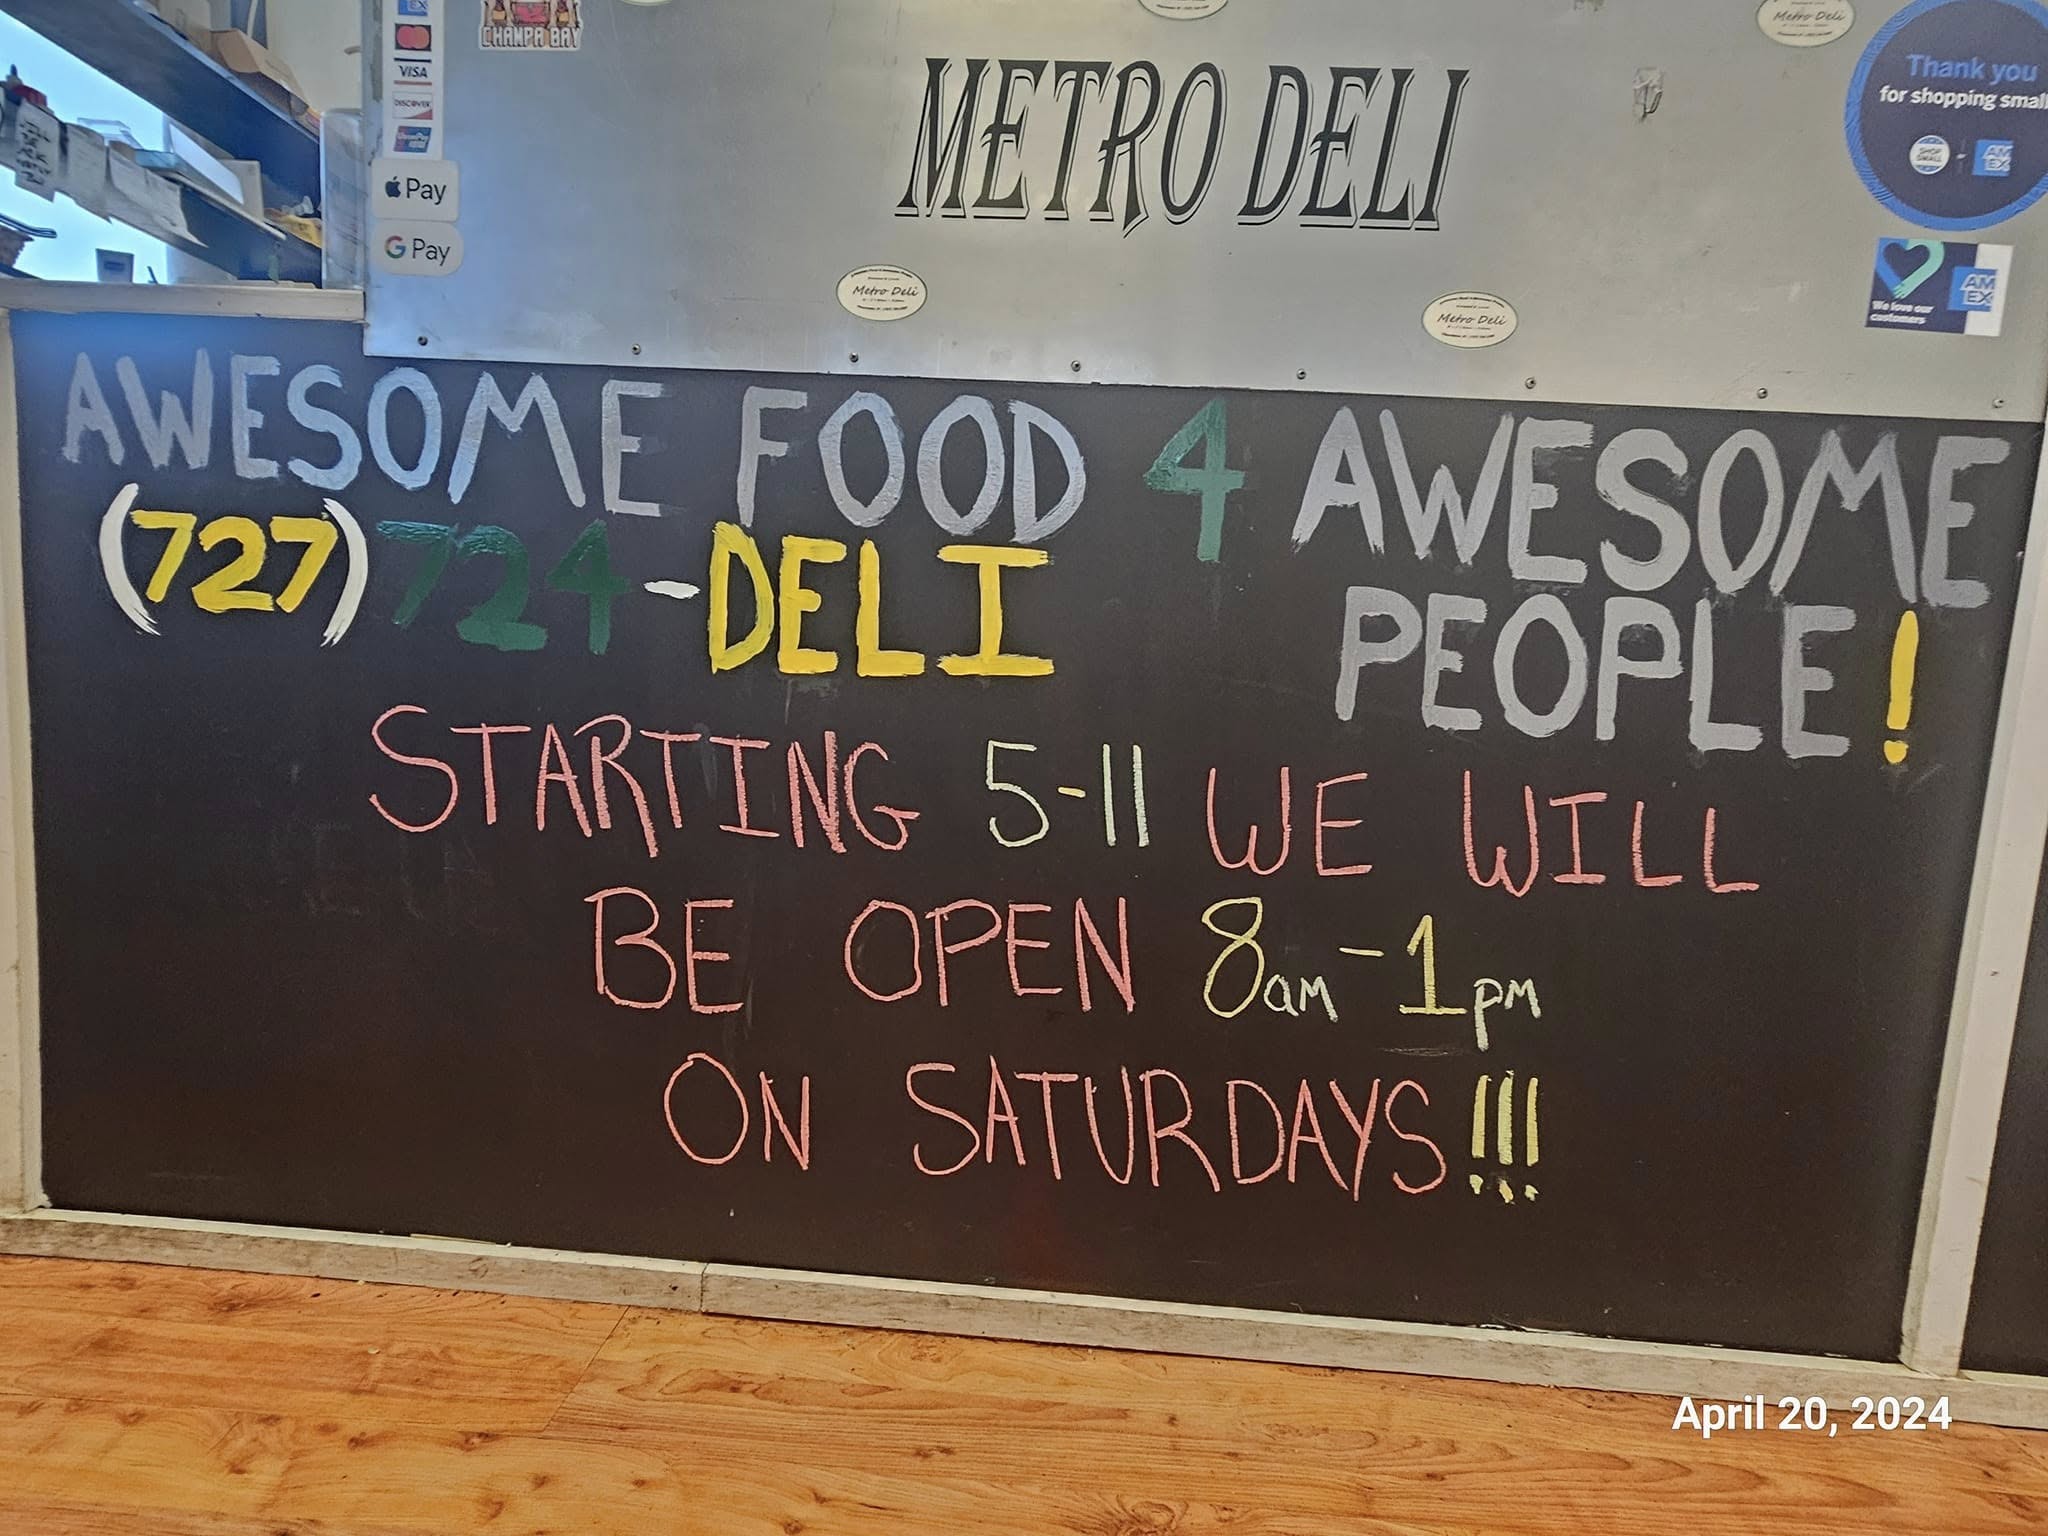 EX
VISA
DISCOVER
Pay
G Pay
CHAMPA BAY
METRO DELI
Metro Deli
Metro Deli
Metro Deli
Thank you
for shopping small
SHOP SMALL
AM EX
We love our
customers
AM EX
AWESOME FOOD 4 AWESOME
(727) 724-DELI
PEOPLE!
STARTING 5-11 WE WILL
BE OPEN 8am-1pm
ON SATURDAYS!!!
April 20, 2024